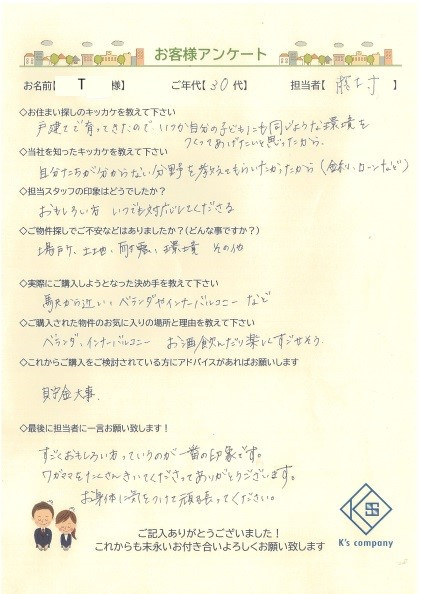 お客様アンケート
お名前【 T 様】 ご年代【 30代】 担当者【 藤本寸 】
◇お住まい探しのキッカケを教えて下さい
戸建てで育ってきたので、いつか自分の子どもにも同じような環境を
つくってあげたいと思ったから。
◇当社を知ったキッカケを教えて下さい
自分たちが分からない分野を教えてもらいたかったから(金利、ローンなど)
◇担当スタッフの印象はどうでしたか?
おもしろい方 いつでも対応してくださる
◇ご物件探しでご不安などはありましたか?(どんな事ですか?)
場所、土地、耐震、環境 その他
◇実際にご購入しようとなった決め手を教えて下さい
駅から近い、ベランダやインナーバルコニー など
◇ご購入された物件のお気に入りの場所と理由を教えて下さい
ベランダ、インナーバルコニー お酒飲んだり楽しくすごせそう。
◇これからご購入をご検討されている方にアドバイスがあればお願いします
貯金大事。
◇最後に担当者に一言お願い致します!
すごくおもしろい方っていうのが一番の印象です。
ワガママをたくさんきいてくださってありがとうございます。
お身体に気をつけて頑張ってください。
ご記入ありがとうございました!
これからも末永いお付き合いよろしくお願い致します
K's company